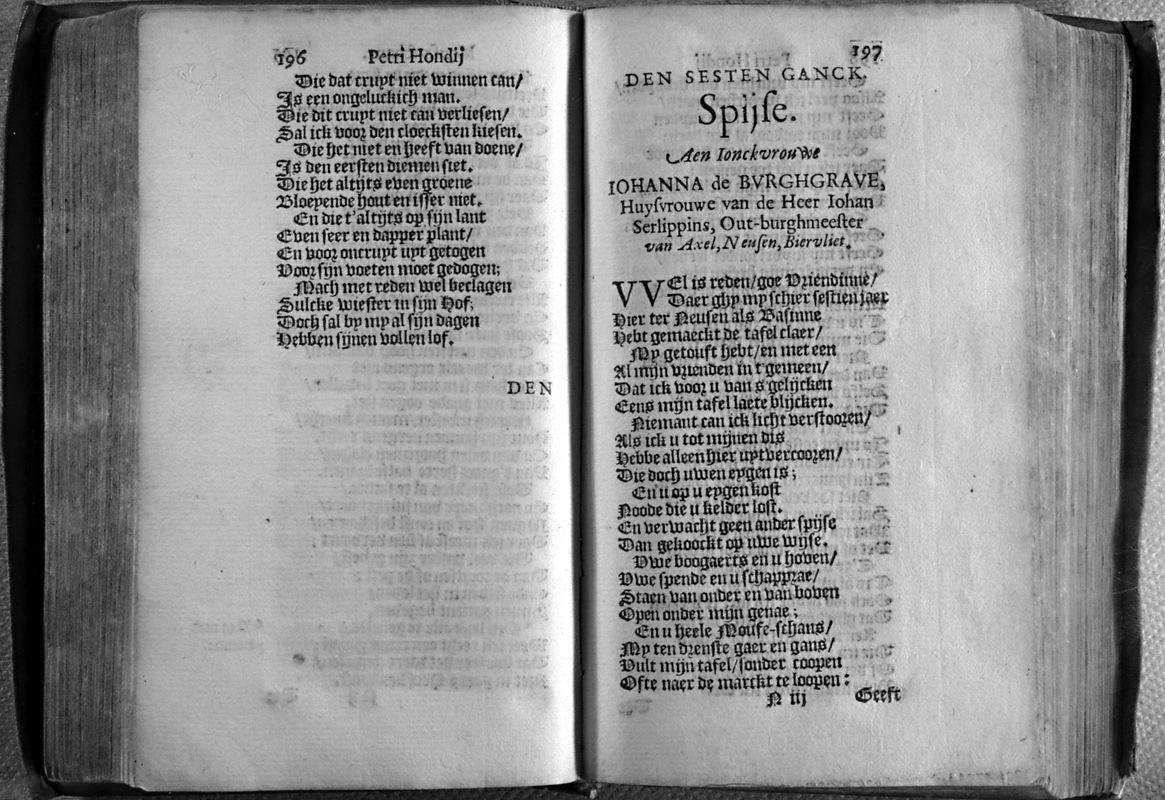 196 Petri Hondij
Die dat cruyt niet winnen can/
Is een ongeluckich man.
Die dit cruyt niet can verliesen/
Sal ick voor den cloecksten kiesen.
Die het niet en heeft van doene/
Is den eersten diemen siet.
Die het altijts even groene
Bloeyende hout en isser niet.
En die t'altijts op sijn lant
Even seer en dapper plant/
En voor oncruyt uyt getogen
Voor sijn voeten moet gedogen;
Mach met reden wel beclagen
Sulcke wiester in sijn Hof;
Doch sal by my al sijn dagen
Hebben sijnen vollen lof.
DEN
197
DEN SESTEN GANCK.
Spijse.
Aen Ionckvrouwe
IOHANNA de BVRGHGRAVE,
Huysvrouwe van de Heer Iohan
Serlippins, Out-burghmeester
van Axel, Neusen, Biervliet.
VVEl is reden/goe Vriendinne/
Daer ghy my schier sestien jaer
Hier ter Neusen als Basinne
Hebt gemaeckt de tafel claer/
My getouft hebt/en met een
Al mijn vrienden in t'gemeen/
Dat ick voor u van s'gelijcken
Eens mijn tafel laete blijcken.
Niemant can ick licht verstooren/
Als ick u tot mijnen dis
Hebbe alleen hier uytvercooren/
Die doch uwen eygen is;
En u op u eygen kost
Noode die u kelder lost.
En verwacht geen ander spijse
Dan gekoockt op uwe wijse.
Vwe boogaerts en u hoven/
Vwe spende en u schapprae/
Staen van onder en van boven
Open onder mijn genae;
En u heele Moufe-schans/
My ten dienste gaer en gans/
Vult mijn tafel/sonder coopen
Ofte naer de marckt te loopen:
N iij Geeft